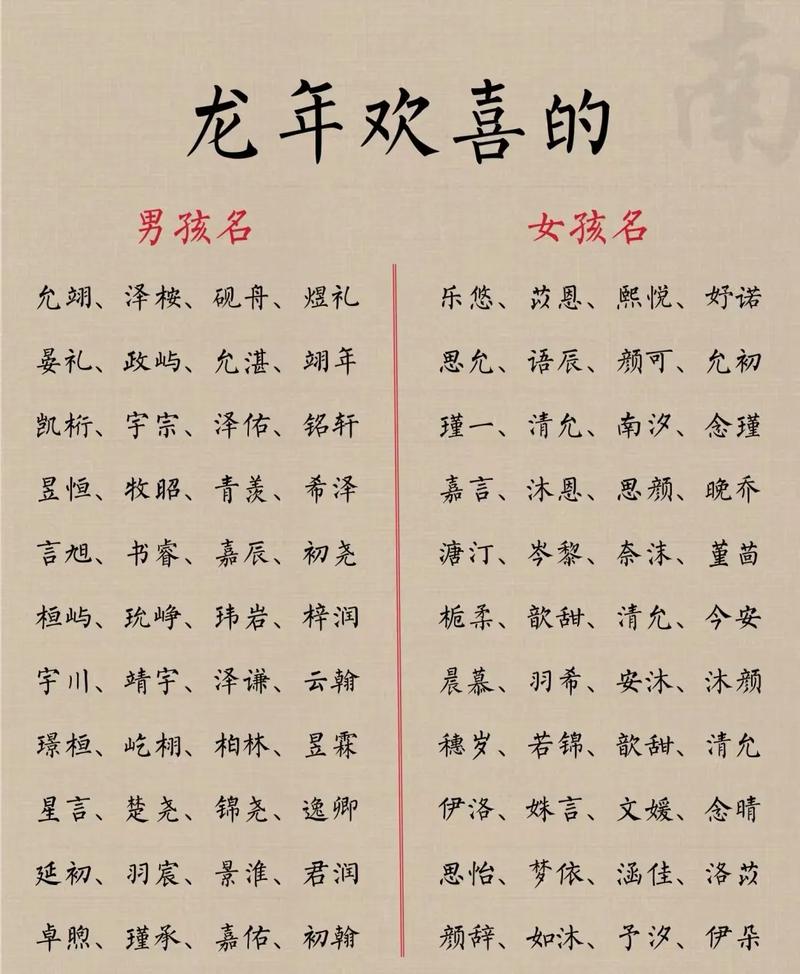 南
龙年欢喜的
男孩名
允翊、泽桉、砚舟、煜礼
晏礼、政屿、允湛、翊年
凯桁、宇宗、泽佑、铭轩
昱恒、牧昭、青羡、希泽
言旭、书睿、嘉辰、初尧
桓屿、玧峥、玮岩、梓润
宇川、靖宇、泽谦、云翰
璟桓、屹栩、柏林、昱霖
星言、楚尧、锦尧、逸卿
延初、羽宸、景淮、君润
卓煦、瑾承、嘉佑、初翰
女孩名
乐悠、苡恩、熙悦、妤诺
思允、语辰、颜可、允初
瑾一、清允、南汐、念瑾
嘉言、沐恩、思颜、晚乔
溏汀、岑黎、奈沫、堇茴
栀柔、歆甜、清允、今安
晨慕、羽希、安沐、沐颜
穗岁、若锦、歆甜、清允
伊洛、姝言、文媛、念晴
思怡、梦依、涵佳、洛苡
颜辞、如沐、予汐、伊朵